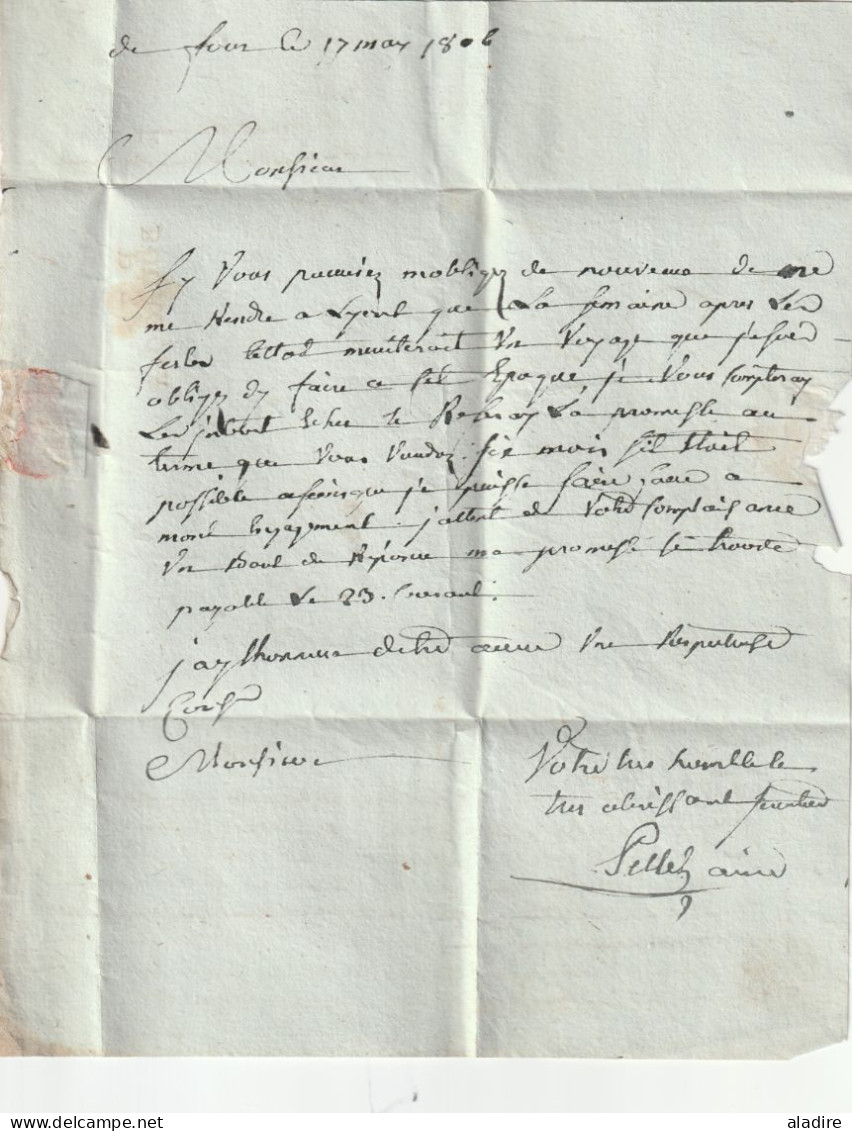 de four Ce 17 may 1806
Monsieur
Sy Vous pouviez mobliger de nouveau de me
me Rendre a que La semaine apres Les
festes meviterait Un Voyage que je serai
obliger dy faire a Epoque, je Vous
Les interet la promesse au
terme que Vous Voudrez. six mois sil Etait
possible afin que je puisse faire face a
mone Engagement. jattent de Votre Complaisance
Un mot de Reponce ma promesse se trouve
payable Le 23. Courant.
jay Lhonneur detre avec Une Respectueuse
Consn
Monsieur
Votre tres humble Et
tres obeissant serviteur
Pellet ainé
aladire
delcampe.net